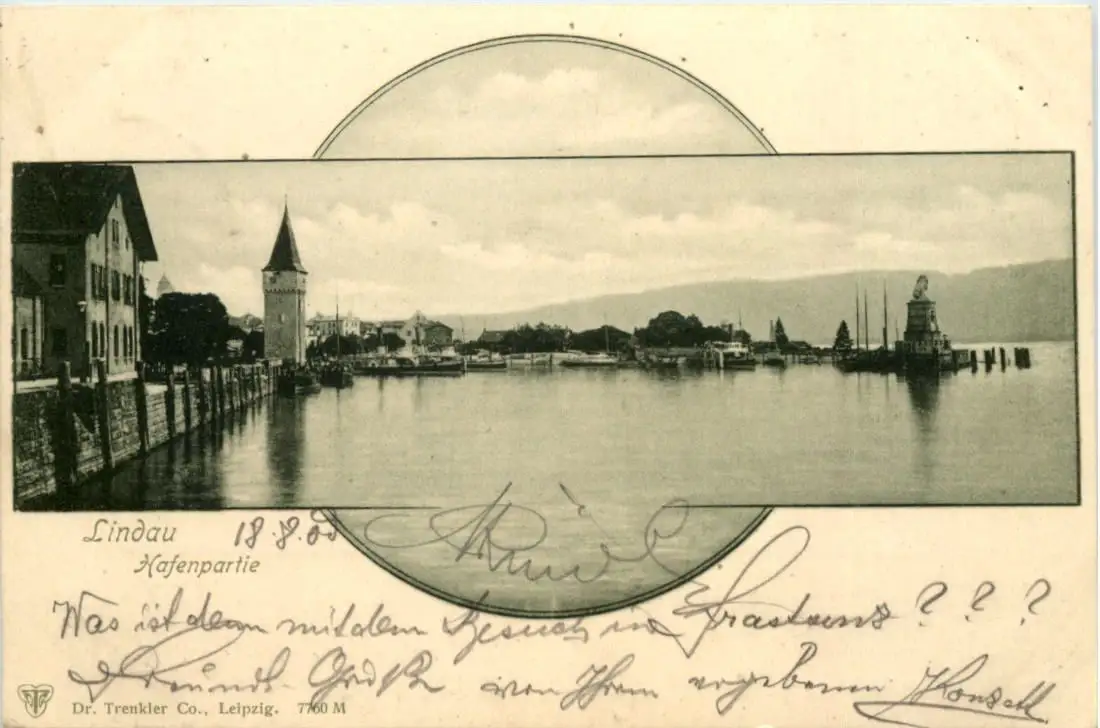 Lindau 18.8.00
Hafenpartie
Was ist denn mit dem Besuch in Frastanz ? ? ?
Freundl. Gruß von Ihrem ergebenen
Dr. Trenkler Co., Leipzig. 7760 M